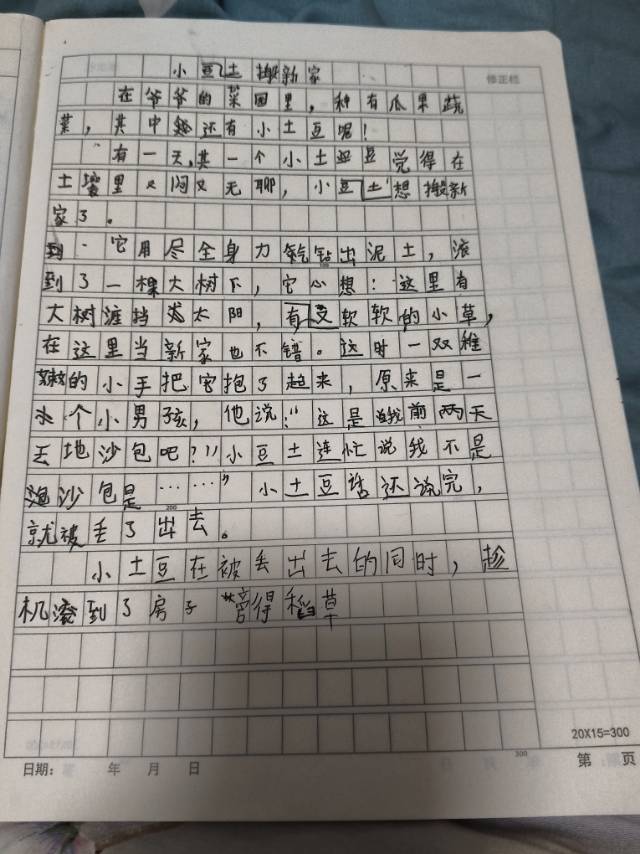 小豆土搬新家
修正栏
在爷爷的菜园里，种有瓜果蔬
菜，其中还有小土豆呢！
有一天，其一个小土豆觉得在
土壤里又闷又无聊，小豆土想搬新
家了。
它用尽全身力气钻出泥土，滚
到了一棵大树下，它心想：这里有
大树遮挡太阳，有又软软的小草，
在这里当新家也不错。这时一双稚
嫩的小手把它抱了起来，原来是一
个小男孩，他说：“这是我前两天
丢地沙包吧？”小豆土连忙说我不是
沙包是……”小土豆话还说完，
就被丢了出去。
小土豆在被丢出去的同时，趁
机滚到了房子旁得稻草
20X15=300
日期： 年 月 日
300
第 页